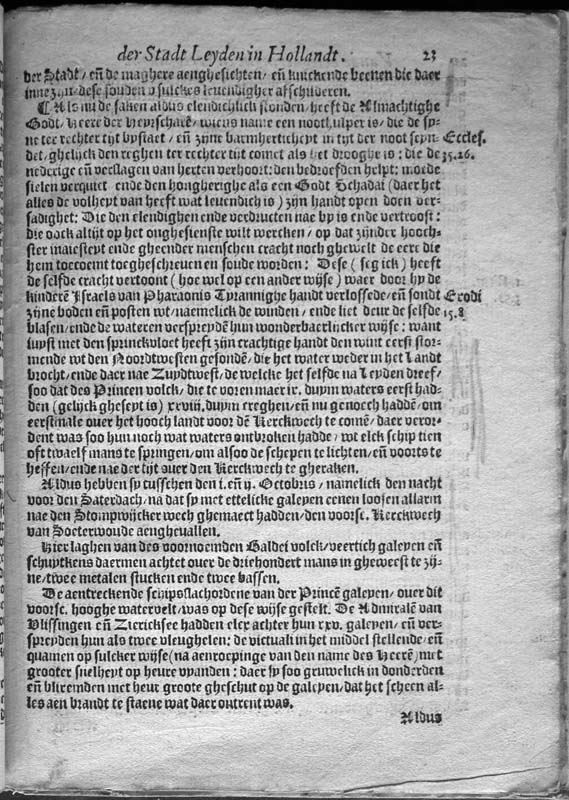 der Stadt Leyden in Hollandt. 23
der Stadt/ eñ de maghere aenghesichten/ eñ knickende beenen die daer
inne zijn/ dese souden v sulckes levendigher afschilderen.
¶ Als nu de saken aldus elendichlich stonden/ heeft de Almachtighe
Godt/ Heere der Heyrscharē/ wiens name een noothulper is/ die de sy-
ne ter rechter tijt bystaet/ eñ zijne barmherticheyt in tijt der noot seyn- Eccles.
det/ ghelijck den reghen ter rechter tijt comet als het drooghe is: die de 35.26.
nederige eñ verslagen van herten verhoort: den bedroefden helpt: moede
sielen verquict ende den hongherighe als een Godt Schadai (daer het
alles de volheyt van heeft wat levendich is) zijn handt open doen ver-
sadighet: Die den elendighen ende verdructen nae by is ende vertroost:
die oock altijt op het onghesienste wilt wercken/ op dat zijnder hooch-
ster maiesteyt ende gheender menschen cracht noch ghewelt de eere die
hem toecoemt toegheschreuen en soude worden: Dese (seg ick) heeft
de selfde cracht vertoont (hoe wel op een ander wijse) waer door hy de
kinderē Israels van Pharaonis Tyrannighe handt verlossede/ eñ sondt Exodi
zijne boden eñ posten wt/ naemelick de winden/ ende liet deur de selfde 15.8
blasen/ ende de wateren verspreydē hun wonderbaerlicker wijse: want
iuyst met den sprinckvloet heeft zijn crachtige handt den wint eerst stor-
mende wt den Noordtwesten gesondē/ die het water weder in het Landt
brocht/ ende daer nae Zuydtwest/ de welcke het selfde na Leyden dreef/
soo dat des Princen volck/ die te voren maer ix. duym waters eerst had-
den (gelijck gheseyt is) xxviij. duym creghen/ eñ nu genoech haddē/ om
eerstmale over het hooch landt voor dē Kerckwech te comē/ daer veror-
dent was soo hun noch wat waters ontbroken hadde/ wt elck schip tien
oft twaelf mans te springen/ om alsoo de schepen te lichten/ eñ voorts te
heffen/ ende nae der tijt over den Kerckwech te gheraken.
Aldus hebben sy tusschen den i. eñ ij. Octobris/ namelick den nacht
voor den Saterdach/ na dat sy met ettelicke galeyen eenen loosen allarm
nae den Stompwijcker wech ghemaect hadden/ den voorsc. Kerckwech
van Soeterwoude aengheuallen.
Hier laghen van des voornoemden Baldei volck/ veertich galeyen eñ
schuytkens daermen achtet over de driehondert mans in gheweest te zij-
ne/ twee metalen stucken ende twee bassen.
De aentreckende schipsslachordene van der Princē galeyen/ over dit
voorsc. hooghe watervelt/ was op dese wijse gestelt. De Admiralē van
Vlissingen eñ Ziericksee hadden elcx achter hun xxv. galeyen/ eñ ver-
spreyden hun als twee vleughelen: de victuali in het middel stellende/ eñ
quamen op sulcker wijse (na aenroepinge van den name des Heerē) met
grooter snelheyt op heure vyanden: daer sy soo gruwelick in donderden
eñ blixemden met heur groote gheschut op de galeyen/ dat het scheen al-
les aen brandt te staene wat daer ontrent was.
Aldus